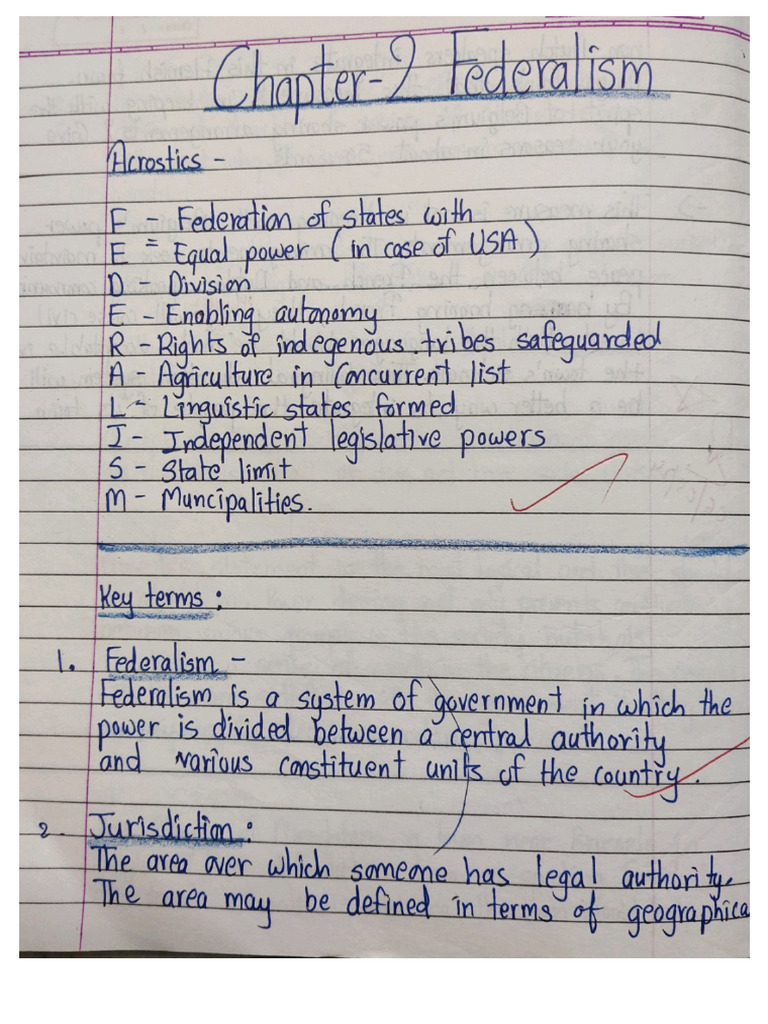 Chapter-2 Federalism
Acrostics -
F - Federation of states with
E = Equal power (in case of USA)
D - Division
E - Enabling autonomy
R - Rights of indegenous tribes safeguarded
A - Agriculture in Concurrent list
L - Linguistic states formed
I - Independent legislative powers
S - State limit
M - Muncipalities.
Key terms :
1. Federalism -
Federalism is a system of government in which the
power is divided between a central authority
and various constituent units of the country.
2. Jurisdiction :
The area over which someone has legal authority.
The area may be defined in terms of geographica